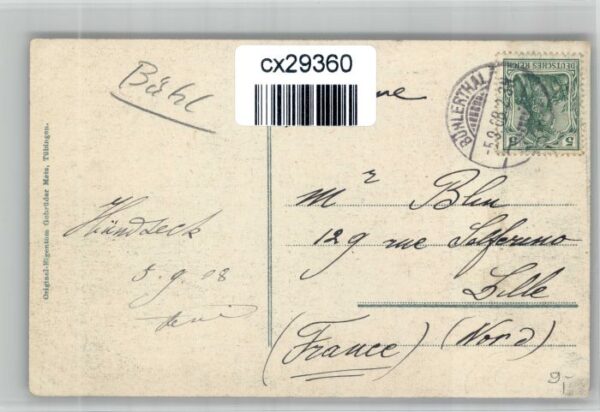 cx29360
Bühl
BÜHLERTHAL
5.9.08
DEUTSCHES REICH
5 5
Original-Eigentum Gebrüder Metz, Tübingen.
Mr Blin
129 rue Solferino
Lille
(France) (Nord)
Hundseck
5.9.08
9.-